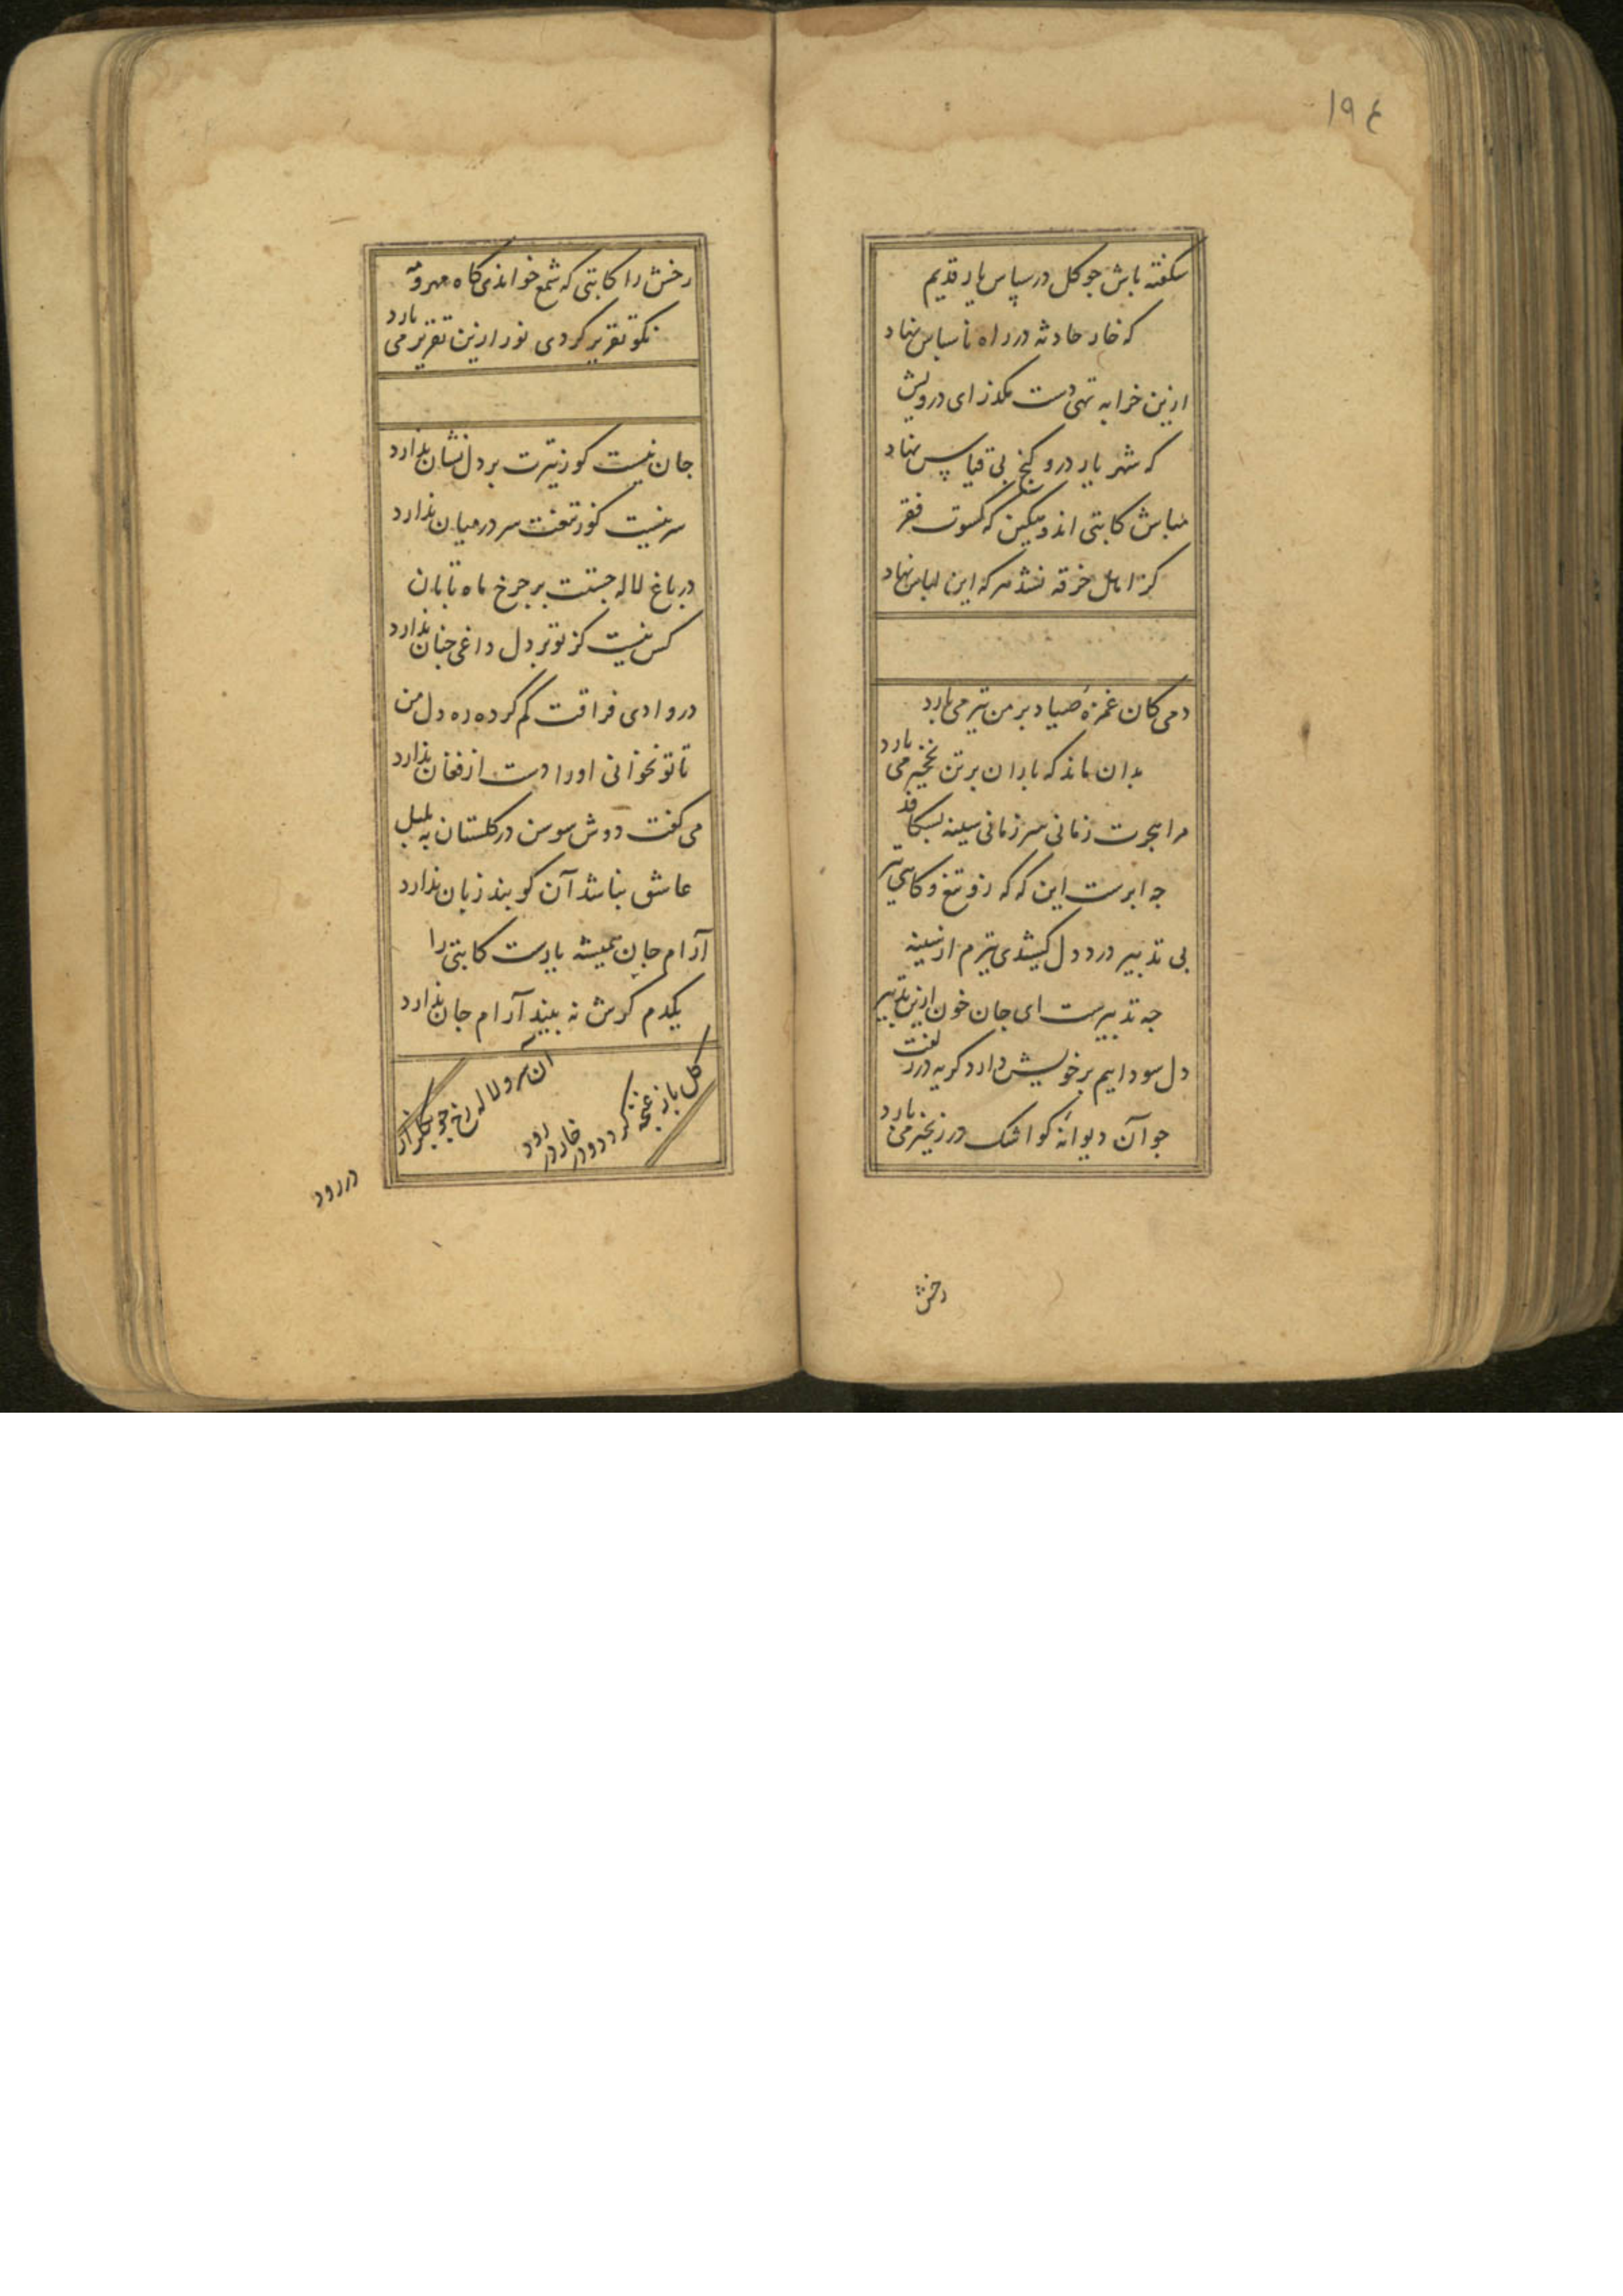 ۱۹۴
شکفته باش جو کل در سپاس یار قدیم
که خار حادثه در راه ناسپاس نهاد
ازین خرابه تهی دست مکذر ای درویش
که شهریار درو کنج بی قیاس نهاد
مباش کاتبی اندوهکین که کسوت فقر
کز اهل خرقه نشد هر که این لباس نهاد
دمی کان غمزهٔ صیاد بر من تیر می بارد
بدان ماند که باران بر تن نخجیر می بارد
مرا هجرت زمانی سر زمانی سینه بشکافد
جه ابرست این که که زو تیغ و کاهی تیر
بی تدبیر درد دل کشیدی تیرم از سینه
جه تدبیرست ای جان خون ازین تدبیر
دل سودایم بر خویش دارد کریه در زلفت
جو آن دیوانهٔ کو اشک در زنجیر می بارد
رخش
رخش را کاتبی که شمع خواندی کاه مهر و مه
نکو تقریر کردی نور ازین تقریر می بارد
جان نیست کو ز تیرت بر دل نشان ندارد
سر نیست کو ز تیغت سر در میان ندارد
در باغ لاله جستت بر جرخ ماه تابان
کس نیست کز تو بر دل داغی جنان ندارد
در وادی فراقت کم کرده ره دل من
تا تو نخوانی او را دست از فغان ندارد
می کفت دوش سوسن در کلستان به بلبل
عاشق نباشد آن کو بند زبان ندارد
آرام جان همیشه یارست کاتبی را
یکدم کرش نه بیند آرام جان ندارد
آن سرو لاله رخ جو بکلزار در رود
کل باز غنچه کردد و در خار در رود
در رود